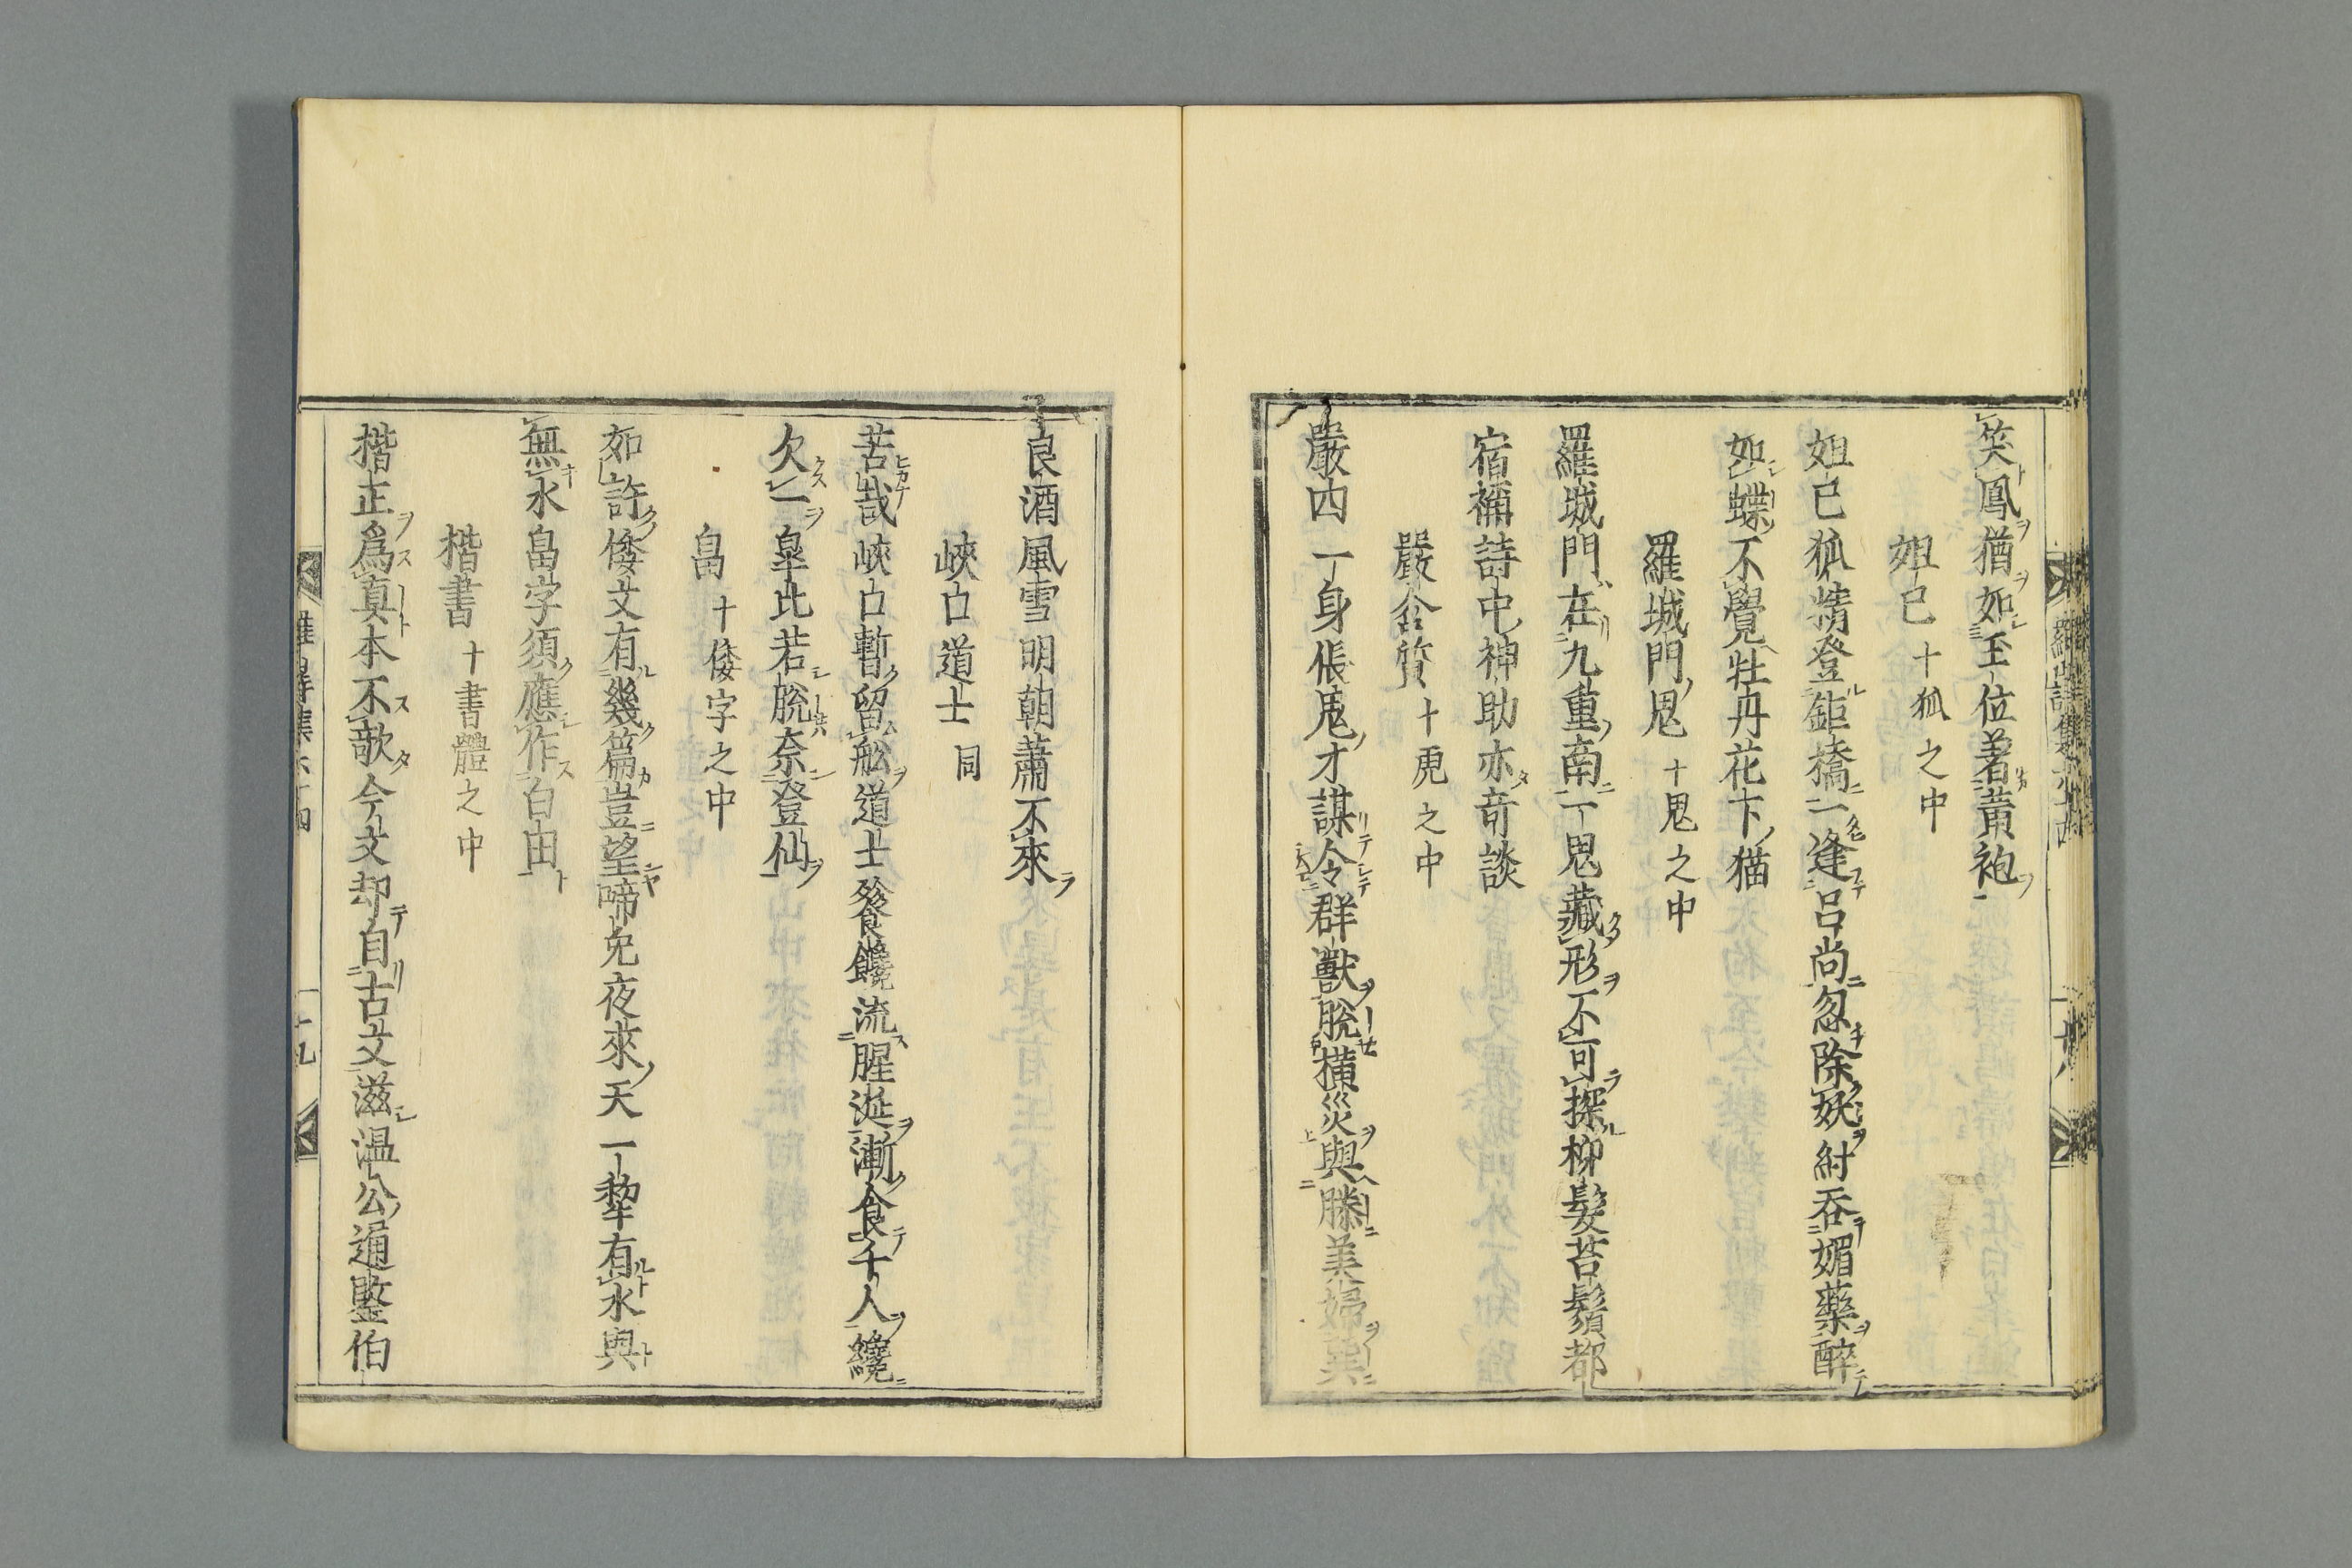 笑鳳猶如王位著黄袍
妲己十狐之中
妲己狐精登鉅橋一逢呂尚忽除妖紂吞媚藥醉
如蝶不覺牡丹花下猫
羅城門鬼十鬼之中
羅城門在九重南一鬼藏形不可探柳髮苔鬚都
宿補詩中神助亦奇談
嚴含質十虎之中
嚴內一身倀鬼才謀令群獸脫橫災與滕美婦巽
二良酒風雪明朝蕭不來
峽口道士同
苦哉峽口暫留舩道士飱饞流腥涎漸食千人纔
欠一皐比若脫奈登仙
畠十倭字之中
如許倭文有幾篇豈望啼免夜來天一犂有水與
無水畠字須應作自由
楷書十書體之中
楷正爲真本不欹今文却自古文滋溫公通鑒伯